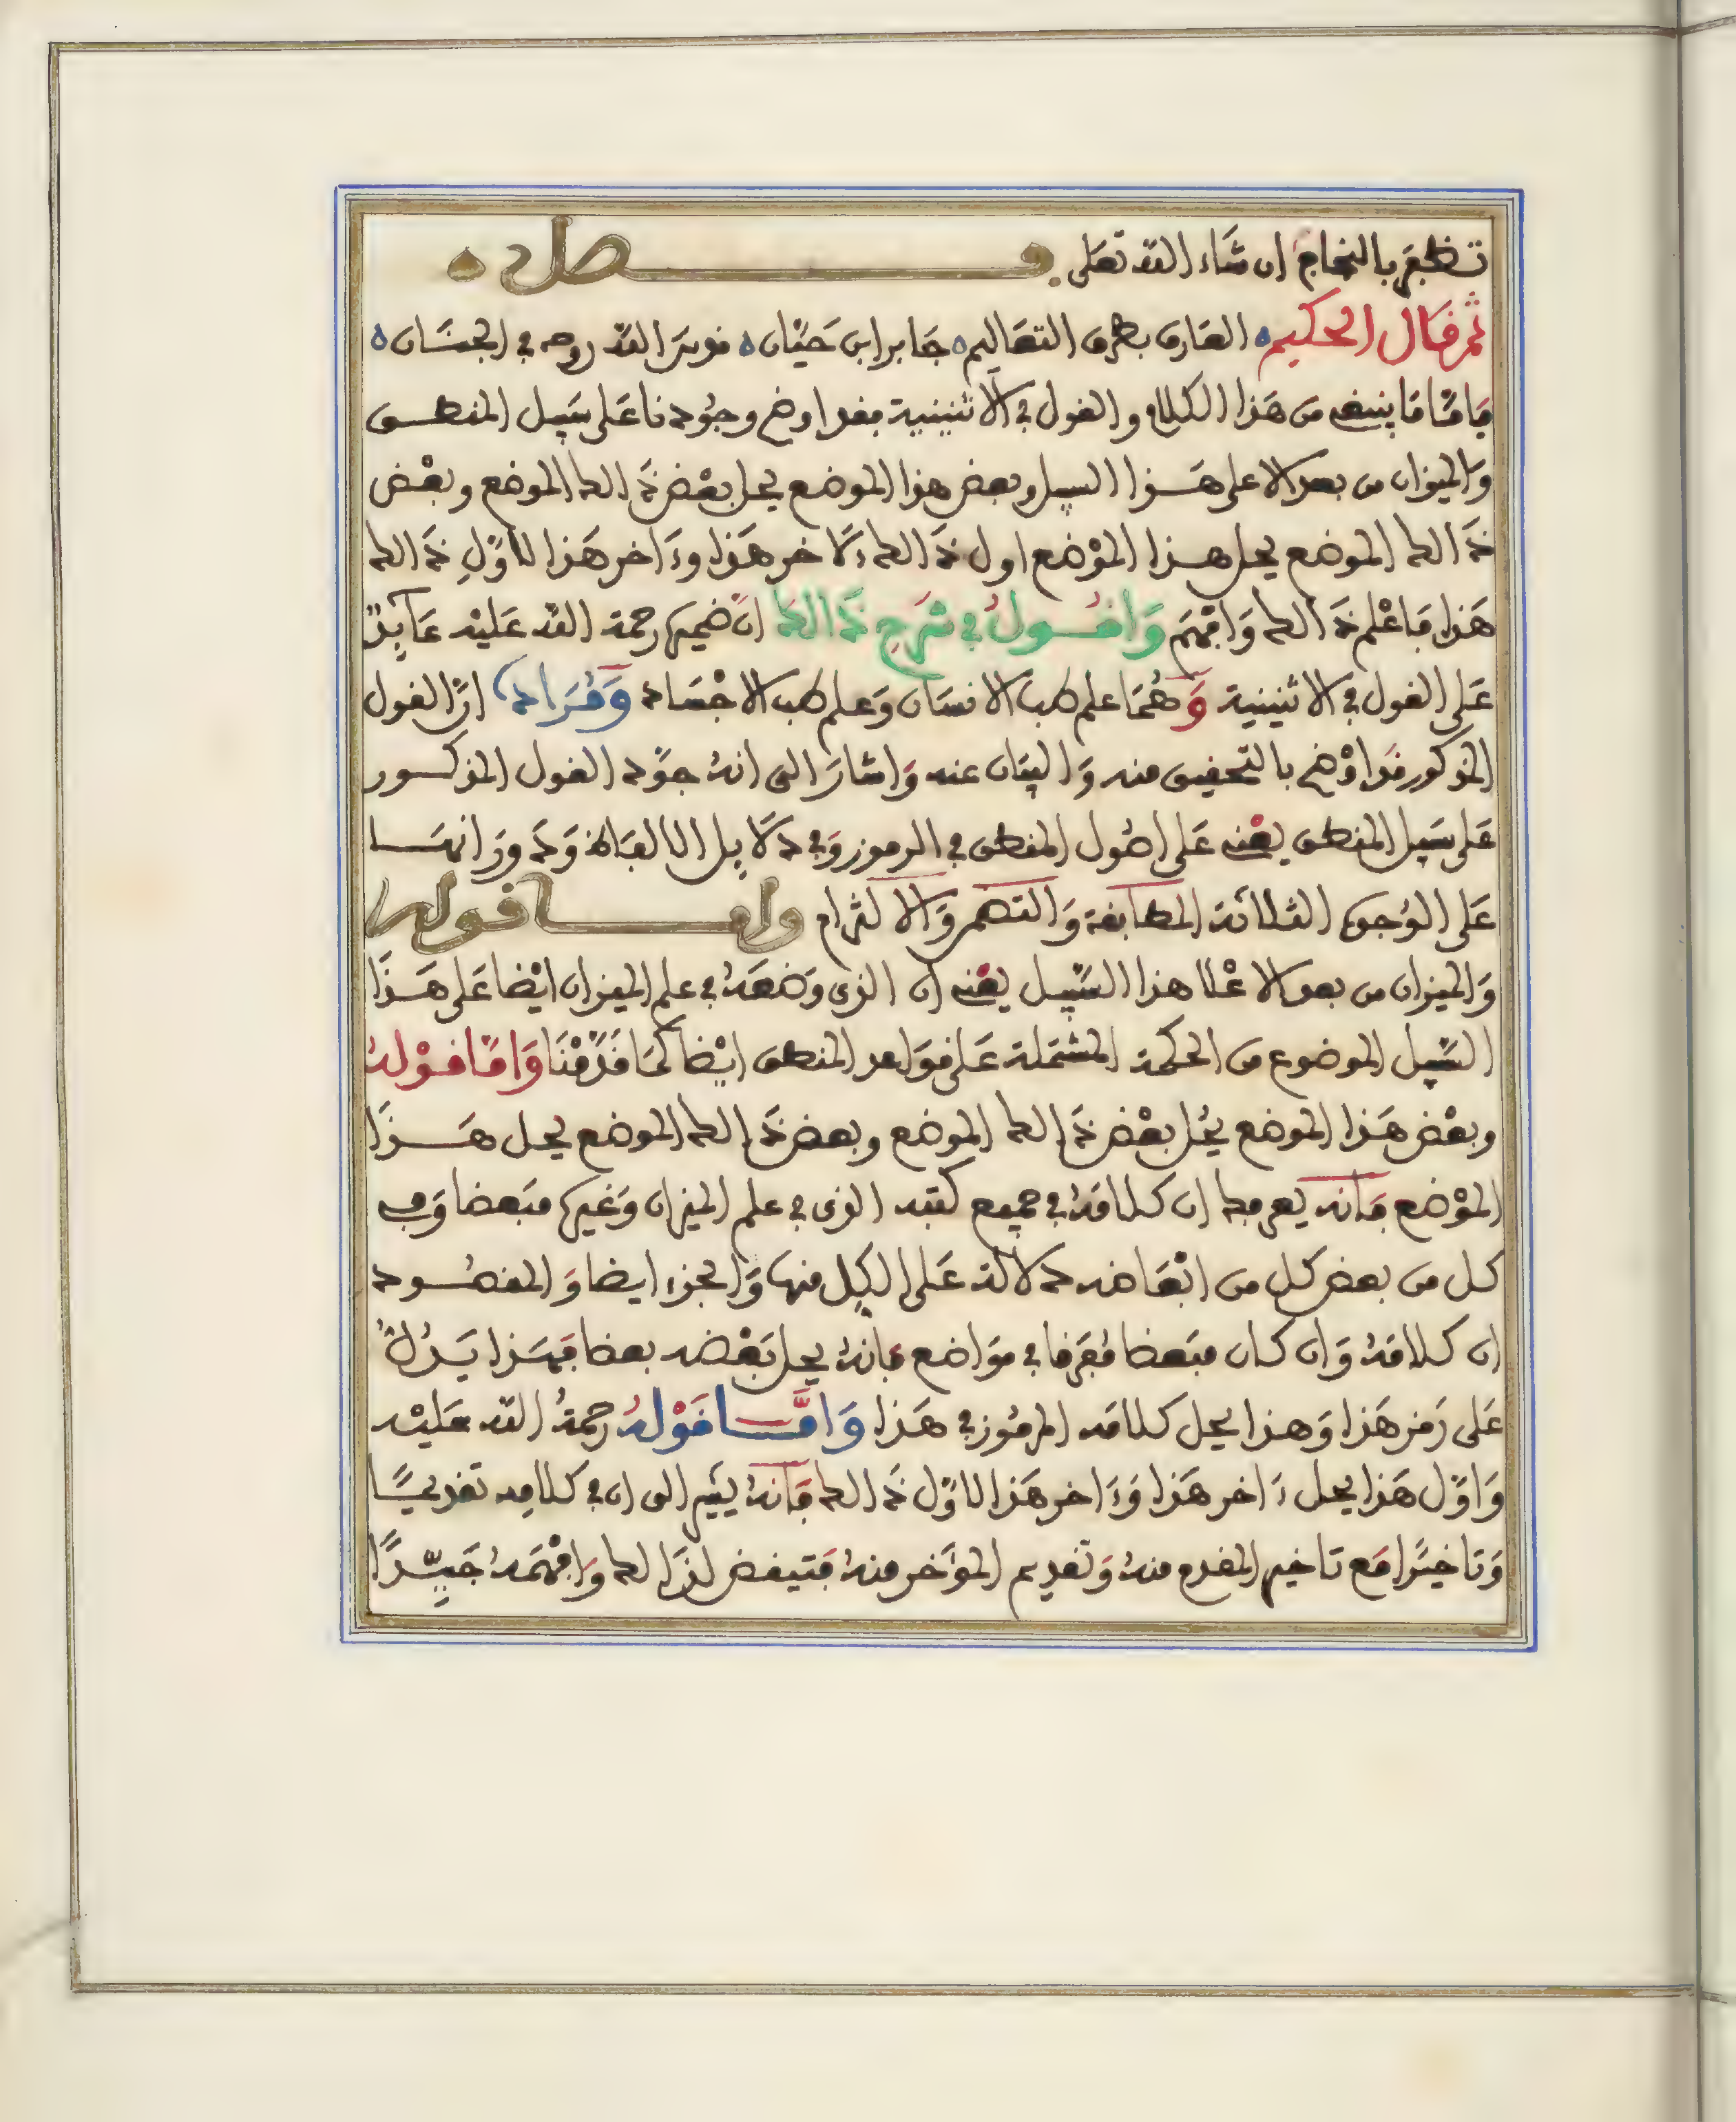 تظفر بالنجاح ان شاء الله تعلى فصل
ثم قال الحكيم العارف بطرق التعاليم جابر ابن حيان قدس الله روحه في الجنان
فاما ما ينبغي من هذا الكلام والقول في الاثنينية فقد اوضح وجود ناعلى سبيل المنطق
والميزان من بعد الا على هذا السبيل وبعض هذا الموضع يحل بعض ذالك الموضع وبعض
ذالك الموضع يحل هذا الموضع اول ذالك ءلاخر هذا وءاخر هذا لاول ذالك
هذا فاعلم ذالك وافهم واقول في شرح ذالك ان ضميره رحمة الله عليه عايد
على القول في الاثنينية وهما علم طب الانسان وعلم طب الاجساد ومراده ان القول
المذكور قد اوضح بالتحقيق منه والبيان عنه واشار الى انه جود القول المذكور
على سبيل المنطق يعني على اصول المنطق في الرموز وفي دلايل الالفاظ ودورانها
على الوجوه الثلاثة المطابقة والتضمر والالتزام واما قوله
والميزان من بعد الا علا هذا السبيل يعني ان الذي وضعه في علم الميزان ايضا على هذا
السبيل الموضوع من الحكمة المشتملة على قواعد المنطق ايضا كما قدمنا واما قوله
وبعض هذا الموضع يحل بعض ذالك الموضع وبعض ذالك الموضع يحل هذا
الموضع فانه يعرفك ان كلامه في جميع كتبه الذي في علم الميزان وغيره مبعضا وفي
كل من بعض كل من ابعاضه دلالة على الكل منها والجزء ايضا والمقصود
ان كلامه وان كان مبعضا مفرقا في مواضع فانه يحل بعضه بعضا فهذا يدل
على رمز هذا وهذا يحل كلامه المرموز في هذا واما قوله رحمة الله عليه
واول هذا يحل ءاخر هذا وءاخر هذا لاول ذالك فانه يشير الى ان في كلامه تقديما
وتاخيرا مع تاخير المقدم منه وتقديم الموخر منه فتيقض لذالك وافهمه جيدا